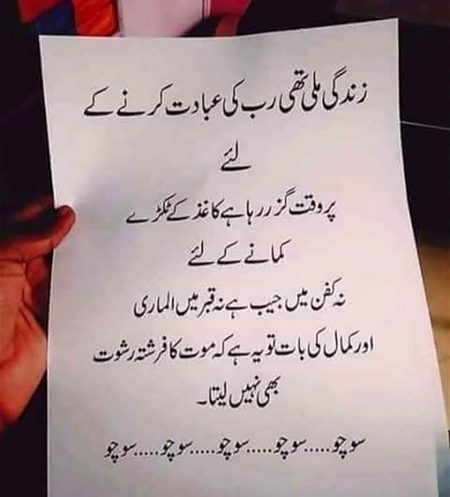 زندگی ملی تھی رب کی عبادت کرنے کے
لئے
پر وقت گزر رہا ہے کاغذ کے ٹکڑے
کمانے کے لئے
نہ کفن میں جیب ہے نہ قبر میں الماری
اور کمال کی بات تو یہ ہے کہ موت کا فرشتہ رشوت
بھی نہیں لیتا۔
سوچو.....سوچو.....سوچو.....سوچو.....سوچو